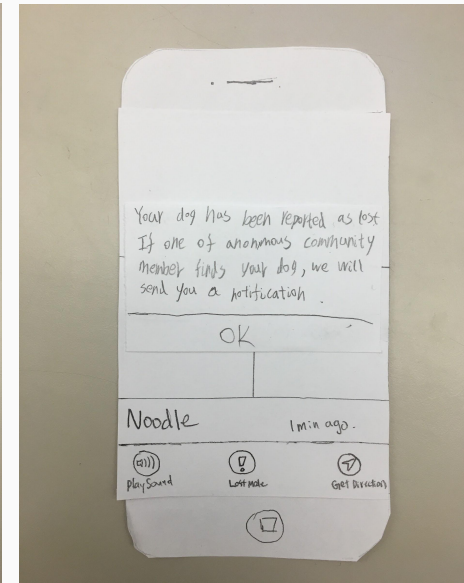 Your dog has been reported as lost
If one of anonmous community
member finds your dog, we will
send you a notification.
OK
Noodle 1 min ago.
Play Sound Lost Mode Get Direction